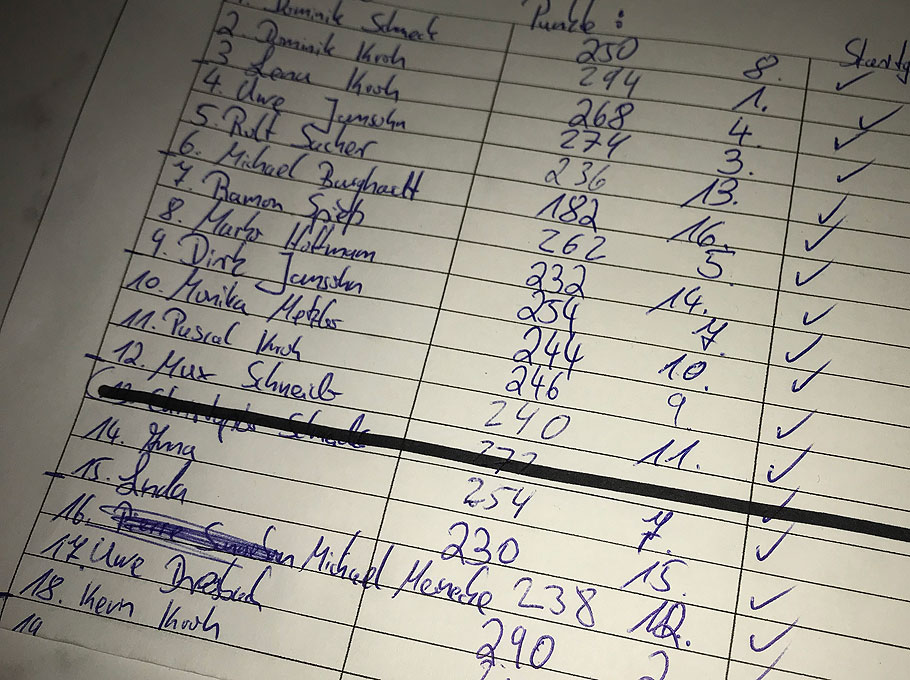 Punkte : Startg
1. Dominik Schneck 250 8. ✓
2. Dominik Kroh 294 1. ✓
3. Lena Kroh 268 4. ✓
4. Uwe Jansohn 274 3. ✓
5. Rolf Sacher 236 13. ✓
6. Michael Burghardt 182 16. ✓
7. Ramon Spieß 262 5. ✓
8. Marko Hoffmann 232 14. ✓
9. Dirk Jansohn 254 7. ✓
10. Monika Metzler 244 10. ✓
11. Pascal Kroh 246 9. ✓
12. Max Schneck 240 11. ✓
14. Anna 254 7. ✓
15. Linda 230 15. ✓
16. Michael 238 12. ✓
17. Uwe 290 2
18. Kevin Kroh
19